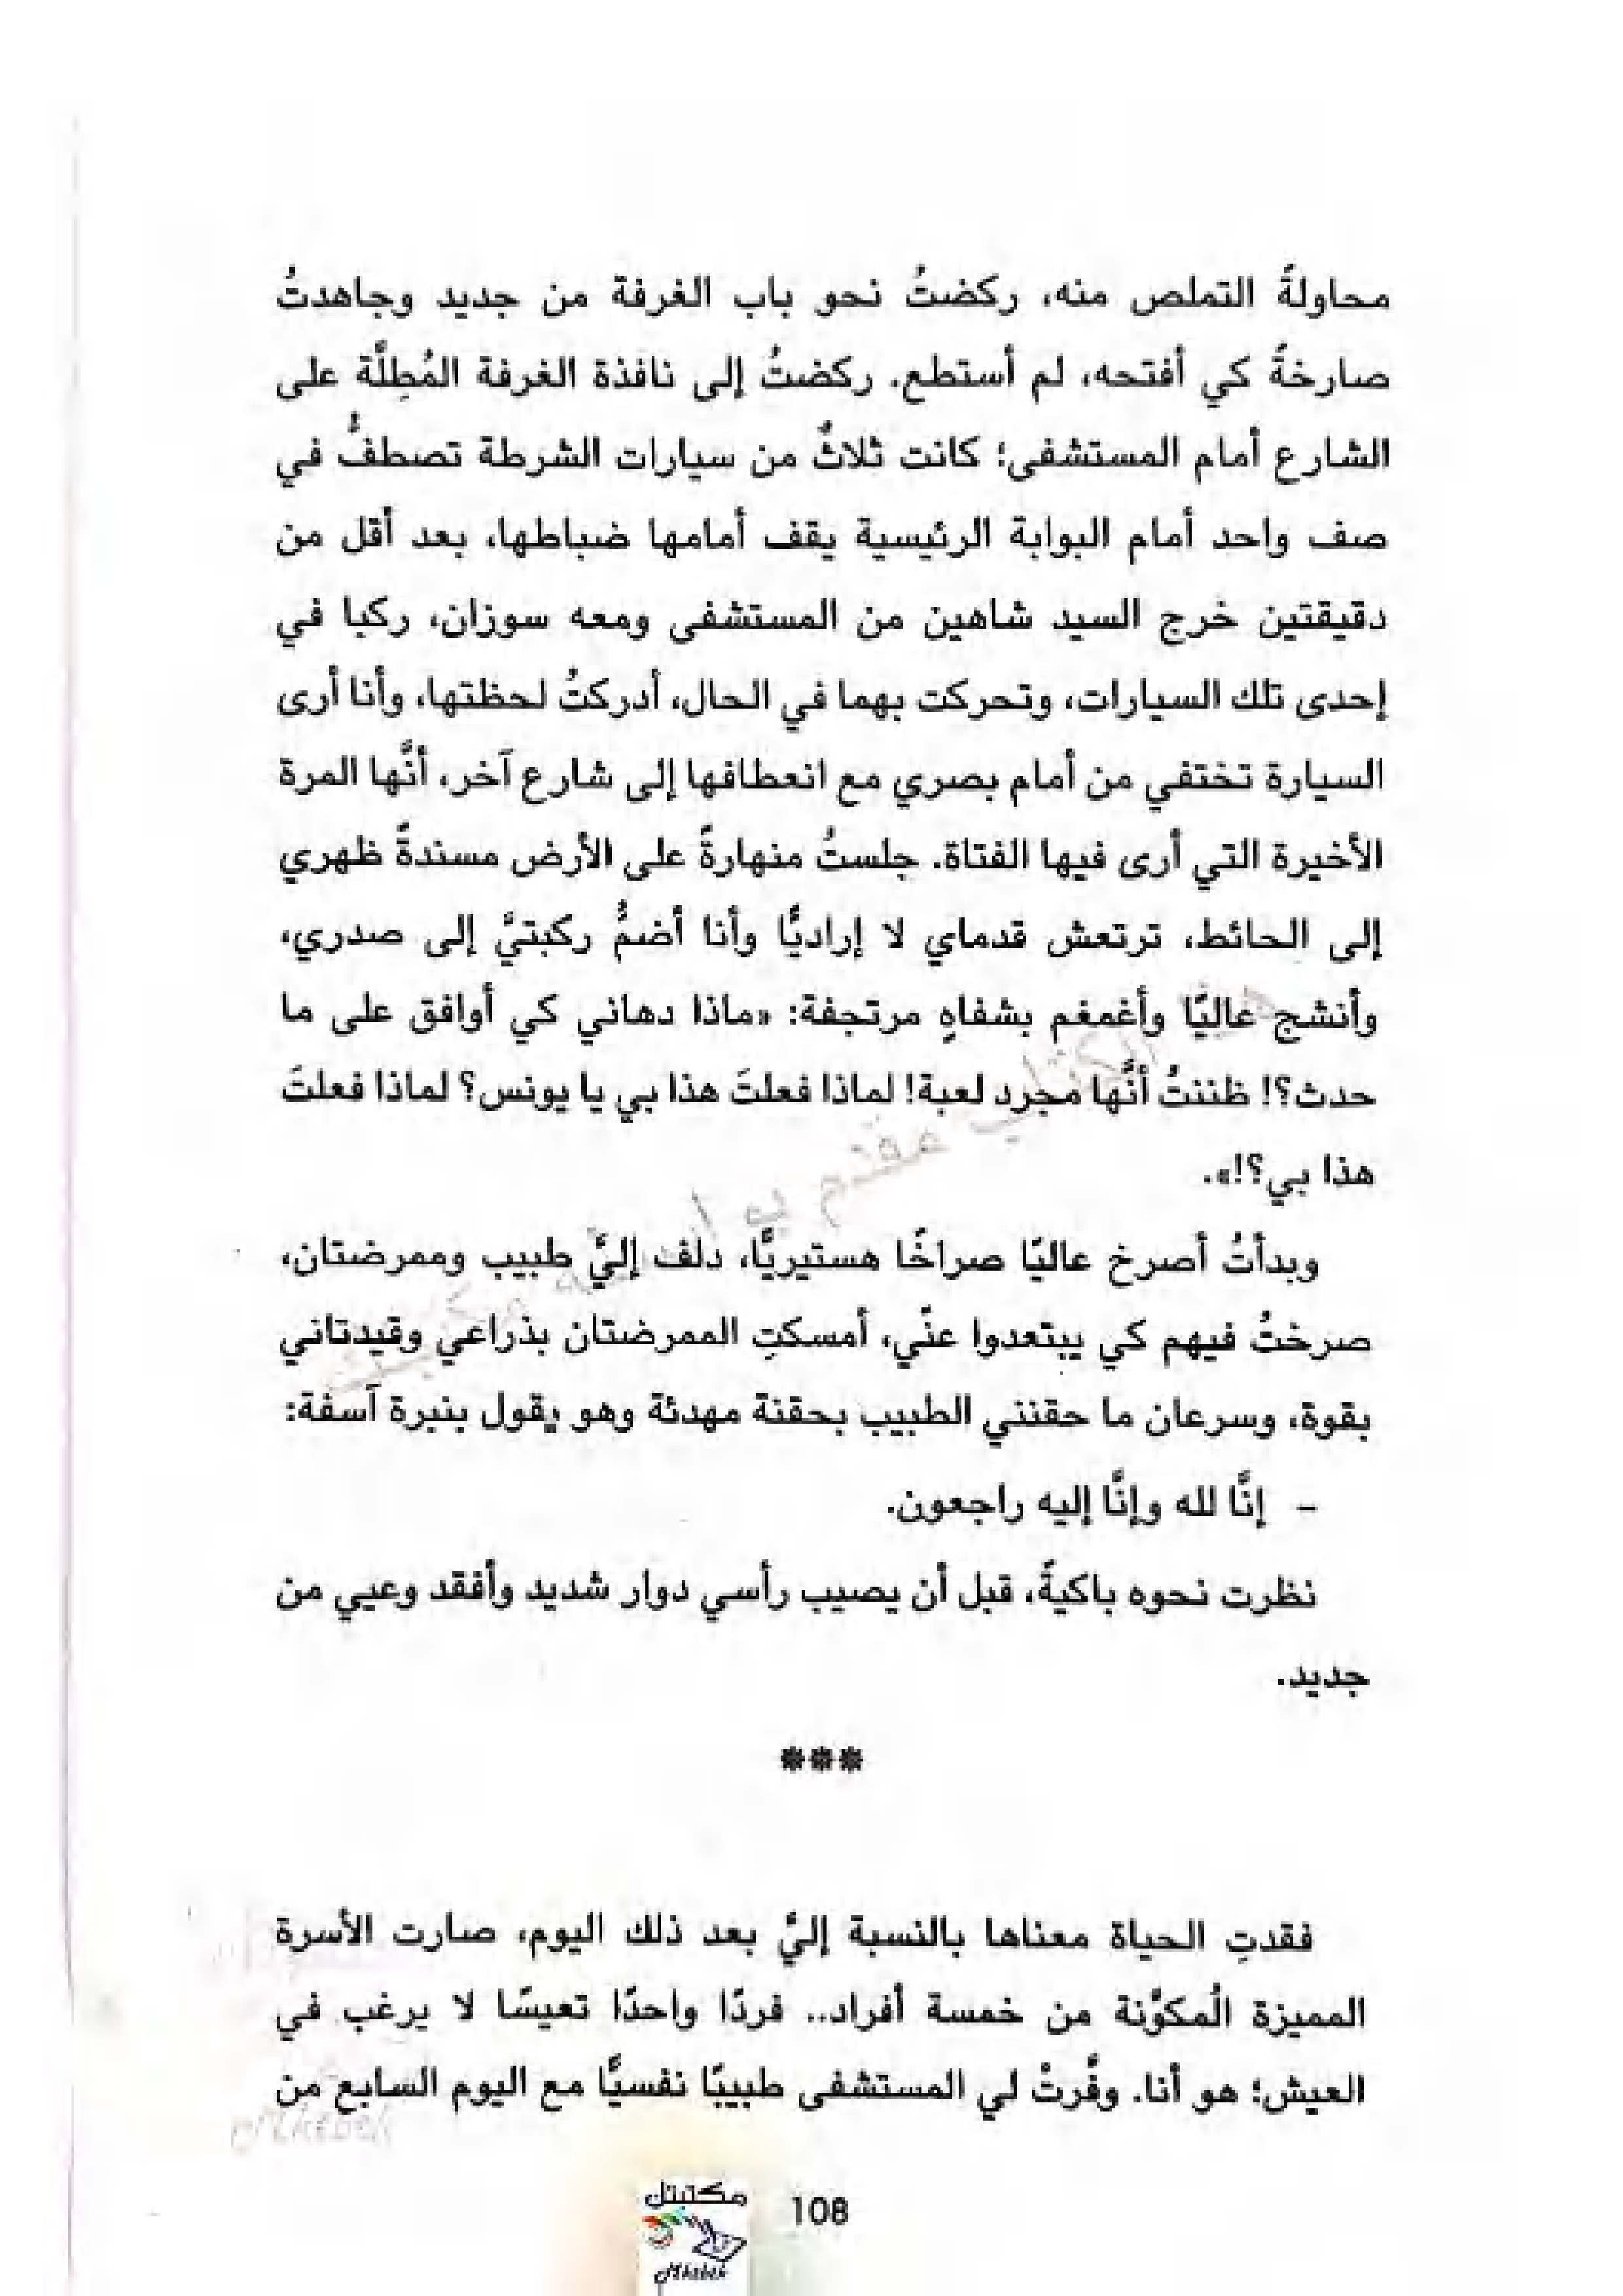 محاولةً التملص منه، ركضتُ نحو باب الغرفة من جديد وجاهدتُ
صارخةً كي أفتحه، لم أستطع. ركضتُ إلى نافذة الغرفة المُطِلَّة على
الشارع أمام المستشفى؛ كانت ثلاثٌ من سيارات الشرطة تصطفُّ في
صف واحد أمام البوابة الرئيسية يقف أمامها ضباطها، بعد أقل من
دقيقتين خرج السيد شاهين من المستشفى ومعه سوزان، ركبا في
إحدى تلك السيارات، وتحركت بهما في الحال، أدركتُ لحظتها، وأنا أرى
السيارة تختفي من أمام بصري مع انعطافها إلى شارع آخر، أنَّها المرة
الأخيرة التي أرى فيها الفتاة. جلستُ منهارةً على الأرض مسندةً ظهري
إلى الحائط، ترتعش قدماي لا إراديًّا وأنا أضمُّ ركبتيَّ إلى صدري،
وأنشج عاليًا وأغمغم بشفاهٍ مرتجفة: «ماذا دهاني كي أوافق على ما
حدث؟! ظننتُ أنَّها مجرد لعبة! لماذا فعلتَ هذا بي يا يونس؟ لماذا فعلتَ
هذا بي؟!».
وبدأتُ أصرخ عاليًا صراخًا هستيريًّا، دلف إليَّ طبيب وممرضتان،
صرختُ فيهم كي يبتعدوا عنّي، أمسكتِ الممرضتان بذراعي وقيدتاني
بقوة، وسرعان ما حقنني الطبيب بحقنة مهدئة وهو يقول بنبرة آسفة:
- إنَّا لله وإنَّا إليه راجعون.
نظرت نحوه باكيةً، قبل أن يصيب رأسي دوار شديد وأفقد وعيي من
جديد.
***
فقدتِ الحياة معناها بالنسبة إليَّ بعد ذلك اليوم، صارت الأسرة
المميزة المكوَّنة من خمسة أفراد.. فردًا واحدًا تعيسًا لا يرغب في
العيش؛ هو أنا. وفَّرتْ لي المستشفى طبيبًا نفسيًّا مع اليوم السابع من
108
مكتبتك